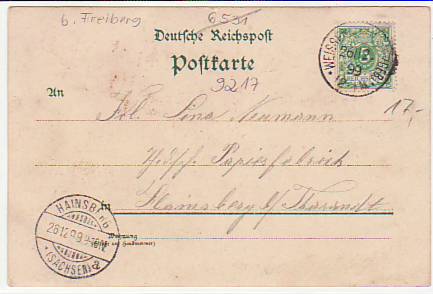 b. Freiberg
6531
Deutsche Reichspost
Postkarte
9217
An
Frl. Lina Neumann
Papierfabrik
in Hainsberg b/ Tharandt
Wohnung
(Straße und Hausnummer)
17,-
WEISSB
26 12
99
HAINSB
26 12 99
(SACHSEN)